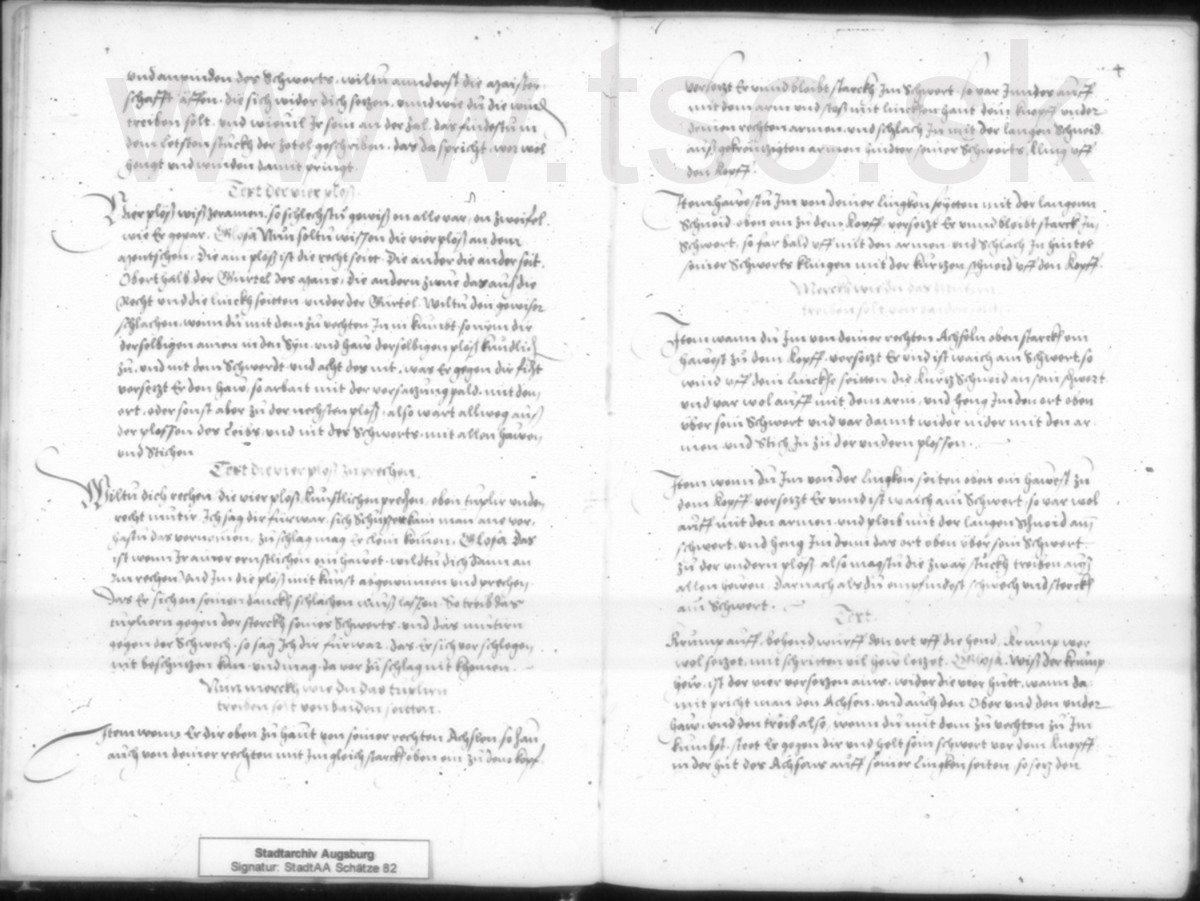 vnd anpinden des Schwerts. wiltu annderst die maister-
schafft äffen. die sich wider dich setzen. vnnd wie du die wind
treiben solt. vnd wieuil Ir sein an der Zal. das findestu in
dem letsten stuckh der zetel geschriben. das da spricht. wer wol
hengt vnd winden damit pringt.
Text der vier ploß
Vier ploß wiß zeramen. so schlechstu gewiß on alle var, on zweifel
wie Er gepar. Glosa Nun soltu wissen die vier ploß an dem
mentschen. Die ain ploß ist die recht seit. Die ander die ander seit.
Oberthalb der Gurtel des mans. die andern zwue das auf die
Recht vnd die linckh seitten vnder der Gurtel. Wiltu den gewiser
schlachen. wenn du mit dem zu vechten In in kumbt. so nym dir
derselbigen ainen in den Syn. vnd haw derselbigen ploß kundlich
zu. vnd mit dem Schwerdt vnd acht des nit. was Er gegen dir ficht
versetzt Er den haw, so arbait mit der versatzung pald. mit dem
ort. oder sonst aber zu der nechsten ploß. also wart allweg auß
der plossen des Leibs. vnd nit des Schwerts. mit allen hawen,
vnd Stichen
Text die vier ploß zu prechen.
Wiltu dich rechen. die vier ploß kunstlichen prechen. oben duplir vnden
recht mutir. Ich sag dir fürwar. sich Schützet kain man ane var.
hastu das vernomen. zu schlag mag Er clein komen. Glosa Das
ist wenn Ir ainer ernstlichen ein hawet. wildtu dich dann an
Im rechen. vnd Im die ploß mit kunst abgewinnen vnd prechen.
Das Er sich on seinen danckh schlachen muß lassen. So treib das
duplieren gegen der sterckh seines Schwerts. vnd das mutirn
gegen der Schwech. so sag Ich dir fürwar. das Er sich vor schlegen,
nit beschutzen kan. vnd mag da vor zu schlag nit khomen.
Nun merckh wie du das duplirn
treiben solt von baiden seitten.
Item wenn Er dir oben zu haut von seiner rechten Achslen. so hau
auch von deiner rechten mit Im gleich starckh oben ein zu dem kopf
versetzt Er vnnd bleibt starckh Im Schwert. so var Inndes auff
mit dem arm vnd stoß mit linckhen hant dein knopff vnder
deinen rechten armen. vnd schlach In mit der langen Schneid
auß gekreutzigten armen hindter seiner Schwerts kling vff
den kopff
Item hawestu Im von deiner lingken seyten mit der langenn
Schneid oben ein zu dem kopff. versetzt Er vnnd bleibt starck Im
Schwert. so far bald vff mit den armen. vnd Schlach In hinter
seiner Schwerts klingen mit der kurtzen schneid vff den kopff
Merckh wie du das Mutirn
treiben solt von baiden seit.
Item wann du Im von deiner rechten Achseln oben starckh ein
hawest zu dem kopff. versetzt Er vnd ist waich am Schwert. so
wind vff dein linckhe seitten die kurtz Schneid an sein schwert
vnd var wol auff mit dem arm, vnd heng Im den ort oben
vber sein Schwert vnd var damit wider nider mit den ar-
men. vnd Stich In zu der vndern plossen.
Item wenn du Im von der lingken seiten oben ein hawest zu
dem kopff. versetzt Er vnnd ist waich am Schwert. so var wol
auff mit den armen. vnd pleib mit der langen Schneid am
schwert. vnd heng Im denn das ort oben vber sein Schwert
zu der vndern ploß. also magstu die zway stuckh treiben auß
allen hewen. Darnach als du empfindest schwech vnd sterckh
am Schwert.
Text.
Krump auff. behend wurff den ort vff die hend. Krump wer
wol setzet. mit schritten vil hew letzet. Glosa. Wiß der krump
hew. ist der vier versetzen ains. wider die vier hutt. wann da
mit pricht man den Achsen. vnd auch den Ober vnd den vnder
haw. vnd den treib also. wenn du mit dem zu vechten zu Im
kumbst. steet Er gegen dir vnd helt sein schwert vor dem knopff
in der hut des Achsens auff seiner lingken seiten so setz den
Stadtarchiv Augsburg
Signatur: StadtAA Schätze 82
www.tsc.sk